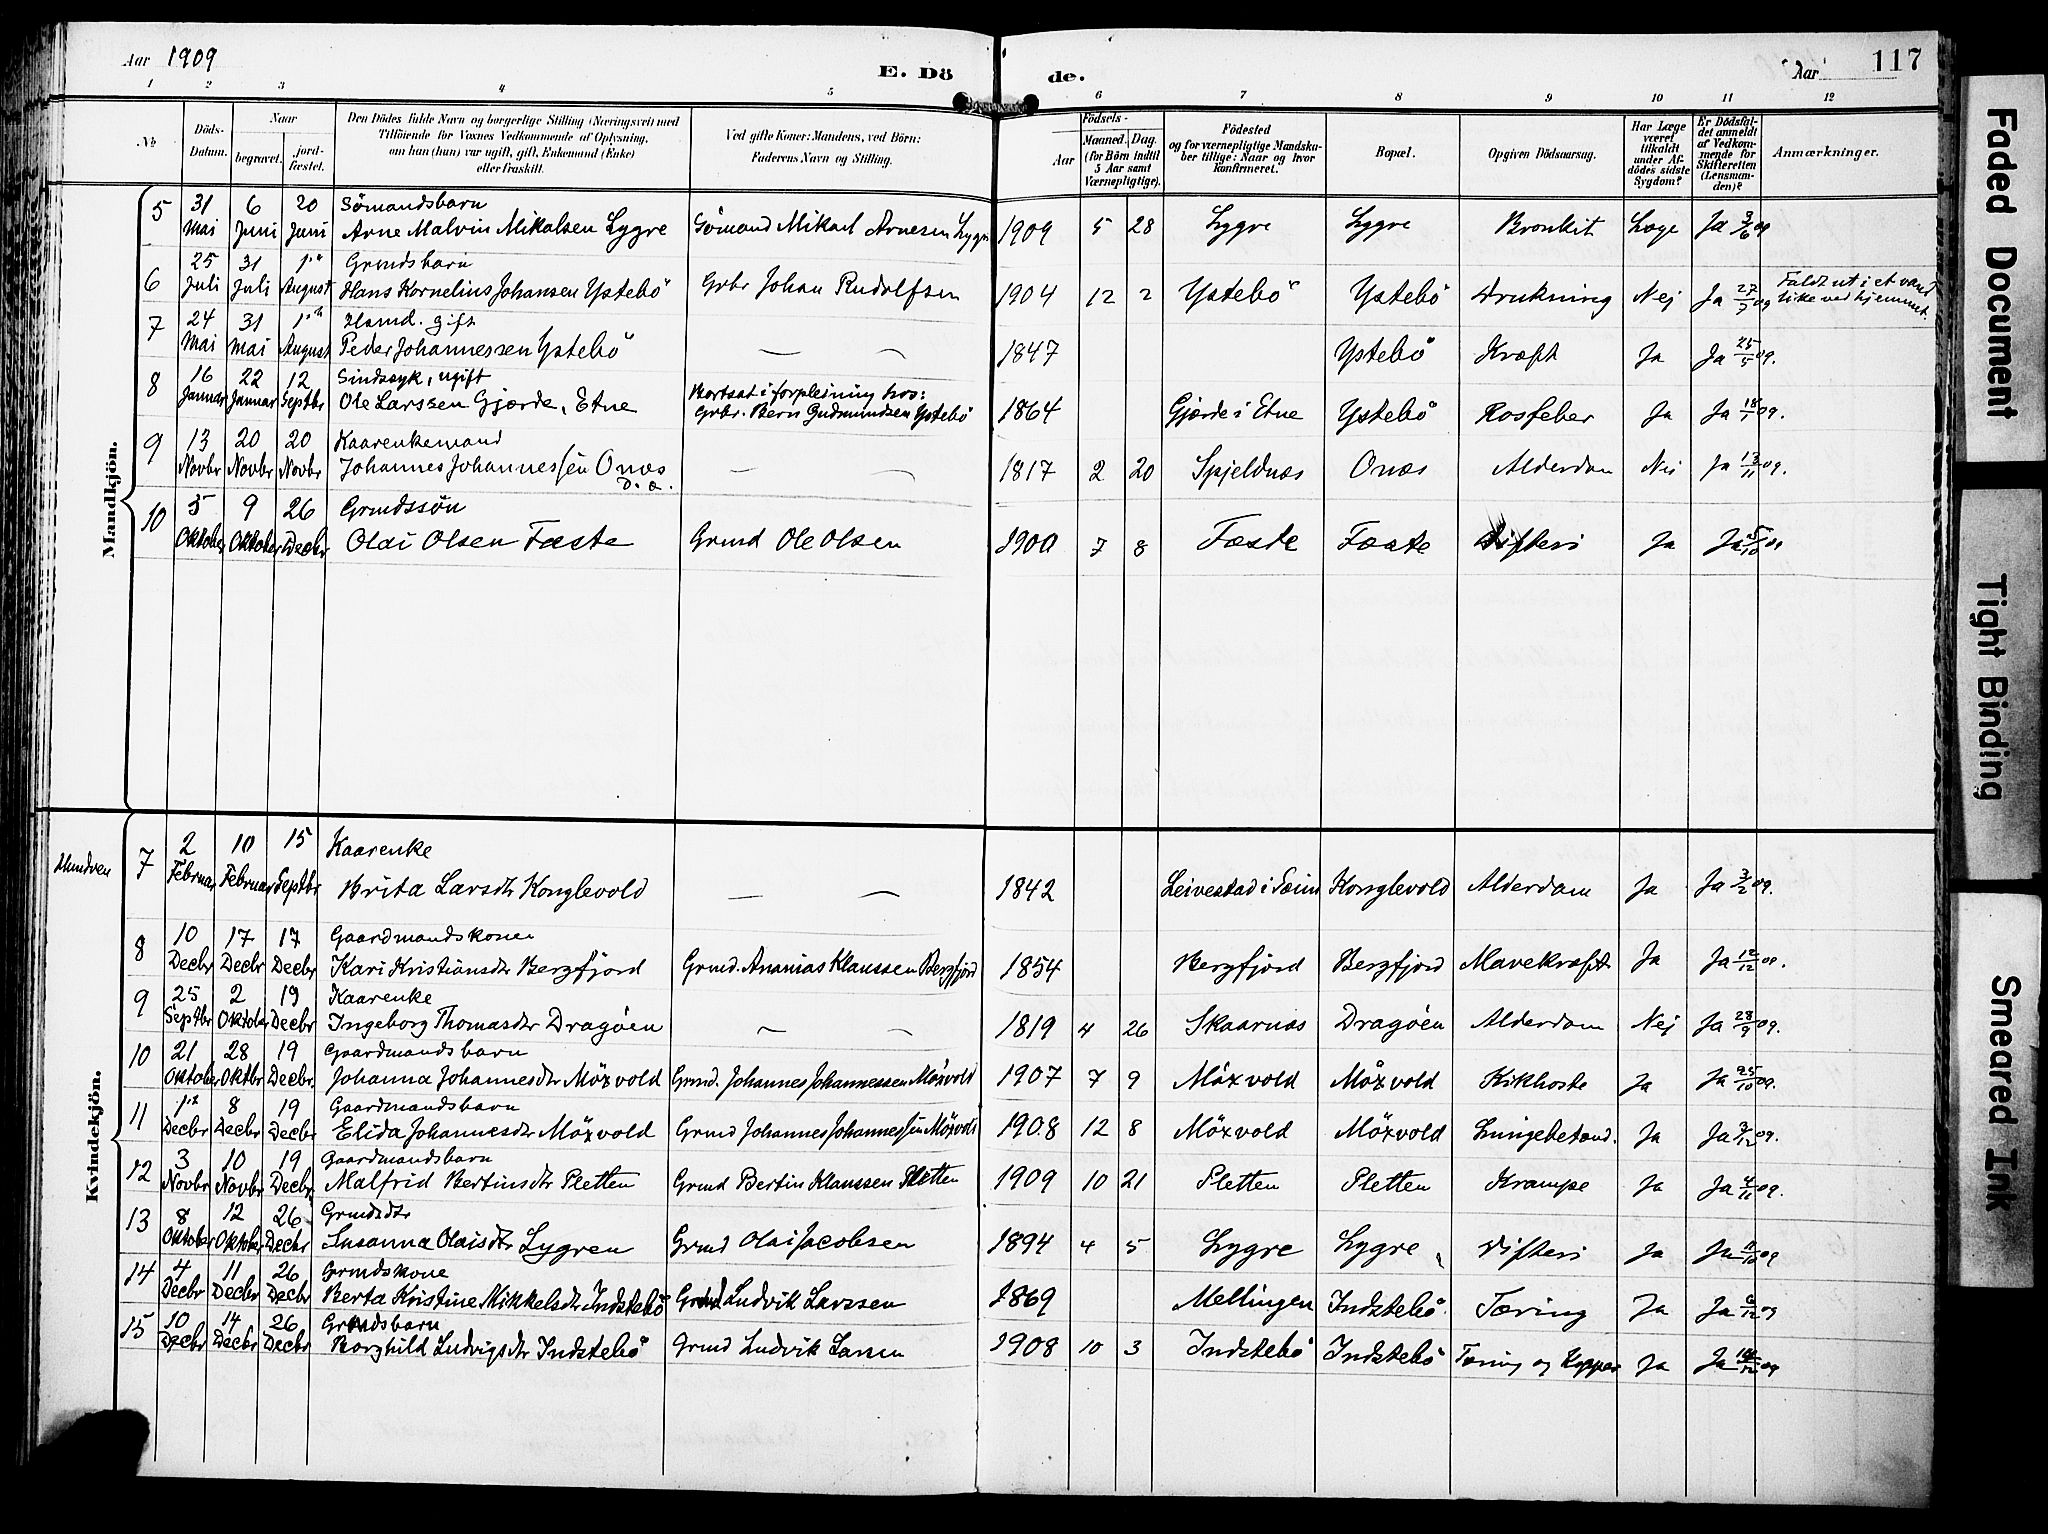 Aar 1909
E. Döde.
Aar
117
1 2 3 4 5 6 7 8 9 10 11 12
No
Döds-Datum.
Naar
begravet.
jord-fæstet.
Den Dödes fulde Navn og borgerlige Stilling (Næringsvei) med
Tilföiende for Voxnes Vedkommende af Oplysning,
om han (hun) var ugift, gift, Enkemand (Enke)
eller fraskilt.
Ved gifte Koner: Mandens, ved Börn:
Faderens Navn og Stilling.
Födsels-
Aar
Maaned. Dag.
(for Börn indtil
5 Aar samt
Værnepligtige).
Födested
og for værnepligtige Mandska-
ber tillige: Naar og hvor
konfirmeret.
Bopæl.
Opgiven Dödsaarsag.
Har Læge
været
tilkaldt
under Af-
dödes sidste
Sygdom?
Er Dödsfal-
det anmeldt
af Vedkom-
mende for
Skifteretten
(Lensman-
den)?
Anmærkninger.
Mandkjön.
5 31 Mai 6 Juni 20 Juni Sömandsbarn
Arne Malvin Mikalsen Lygre Sömand Mikael Arnesen Lygre 1909 5 28 Lygre Lygre Bronkit Læge Ja 3/6 09
6 25 Juli 31 Juli 1ste August Grmdsbarn
Hans Kornelius Johansen Ystebö Grbr Johan Rudolfsen 1904 12 2 Ystebö Ystebö Drukning Nej Ja 27/7 09 Faldt ut i et vand
like ved hjemmet.
7 24 Mai 31 Mai 1ste August Husmd. gift
Peder Johannessen Ystebö — — 1847 Ystebö Kræft Ja Ja 25/5 09.
8 16 Januar 22 Januar 12 Septbr Sindssyk, ugift
Ole Larssen Gjærde, Etne Bortsat i forpleining hos:
Grbr. Bern Gudmundsen Ystebö 1864 Gjærde i Etne Ystebö Rosfeber Ja Ja 18/1 09.
9 13 Novbr 20 Novbr 20 Novbr Kaarenkemand
Johannes Johannessen Onæs D. æ. — — 1817 2 20 Spjeldnæs Onæs Alderdom Nei Ja 13/11 09.
10 5 Oktober 9 Oktober 26 Decbr Grmdssön
Olai Olsen Fæste Grmd Ole Olsen 1900 7 8 Fæste Fæste Difteri Ja Ja 5/10 09
Kvindekjön.
7 2 Februar 10 Februar 15 Septbr Kaarenke
Brita Larsdtr Konglevold — — 1842 Leivestad i Konglevold Alderdom Ja Ja 3/2 09.
8 10 Decbr 17 Decbr 17 Decbr Gaardmandskonen
Kari Kristiansdtr Bergfjord Grmd. Ananias Klaussen Bergfjord 1854 Bergfjord Bergfjord Mavekræft Ja Ja 12/12 09.
9 25 Septbr 2 Oktober 19 Decbr Kaarenke
Ingeborg Thomasdtr Dragöen — — 1819 4 26 Skaarnæs Dragöen Alderdom Nej Ja 28/9 09.
10 21 Oktober 28 Oktbr 19 Decbr. Gaardmandsbarn
Johanna Johannesdtr Möxvold Grmd. Johannes Johannessen Möxvold 1907 7 9 Möxvold Möxvold Kikhoste Ja Ja 25/10 09.
11 1ste Decbr 8 Decbr 19 Decbr Gaardmandsbarn
Elida Johannesdtr Möxvold Grmd Johannes Johannessen Möxvold 1908 12 8 Möxvold Möxvold Lungebetænd. Ja Ja 3/12 09.
12 3 Novbr 10 Novbr 19 Decbr Gaardmandsbarn
Malfrid Bertinsdtr Pletten Grmd Bertin Klaussen Pletten 1909 10 21 Pletten Pletten Krampe Ja Ja 4/11 09.
13 8 Oktober 12 Oktober 26 Decbr Grmdsdtr
Susanna Olaisdtr Lygren Grmd Olai Jacobsen 1894 4 5 Lygre Lygre Difteri Ja Ja 11/10 09
14 4 Decbr 11 Decbr 26 Decbr Grmdskone
Berta Kristine Mikkelsdtr Indstebö Grmd Ludvik Larssen 1869 Mellingen Indstebö. Tæring Ja Ja 6/12 09
15 10 Decbr 14 Decbr 26 Decbr Grmdsbarn
Borghild Ludvigsdtr Indstebö Grmd Ludvik Larsen 1908 10 3 Indstebö Indstebö Tæring og Kopper Ja Ja 12 09
Faded Document
Tight Binding
Smeared Ink